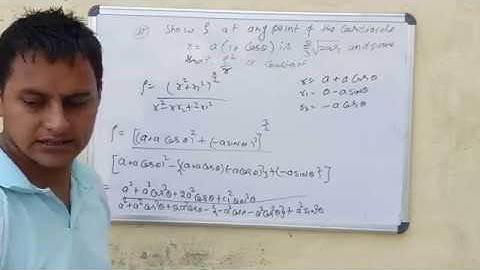 Show ρ at any point of the Cardioide
r = a(1+Cosθ) is 2/3 √2ar, and prove
that ρ²/r is Constant
ρ = (r²+r₁²)^3/2 / r²-rr₂+2r₁²
r = a+a Cosθ
r₁ = 0-a sinθ
r₂ = -a Cosθ
ρ = [(a+a Cosθ)²+(-a sinθ)²]^3/2
[(a+a Cosθ)²-{(a+a Cosθ)(-a Cosθ)}+(-a sinθ)²]
= a²+a²Cos²θ+2a²Cosθ+a²Sin²θ